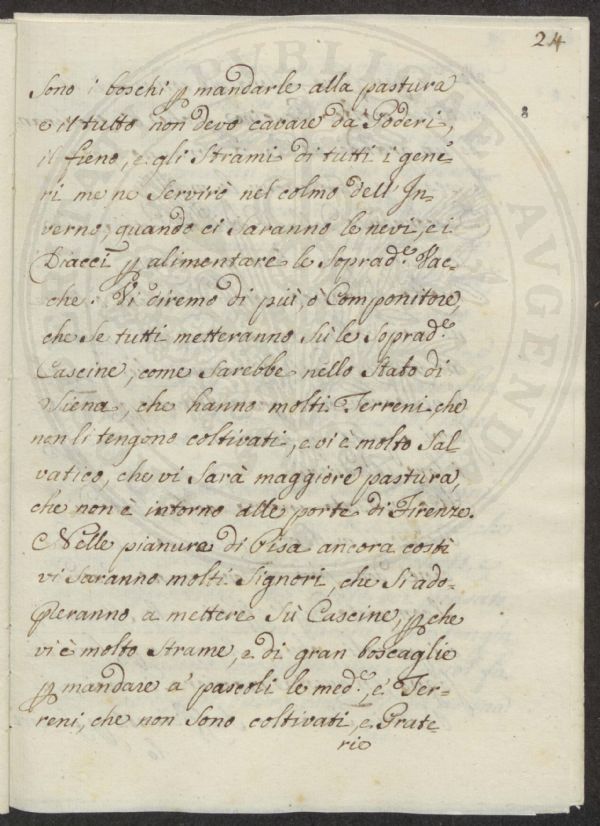 24
Sono i boschi ꝑ mandarle alla pastura
e il tutto non devo cavare da' Poderi,
il fieno, e gli Strami di tutti i gene-
ri me ne Servirò nel colmo dell' In-
verno, quando ci Saranno le nevi, e i
Diacci ꝑ alimentare le Soprad.e Vac-
che: Vi diremo di più, ò Componitore,
che Se tutti metteranno Sù le Soprad.e
Cascine, come Sarebbe nello Stato di
Siena, che hanno molti Terreni che
non li tengono coltivati, e vi è molto Sal
vatico, che vi Sarà maggiore pastura,
che non è intorno alle porte di Firenze.
Nelle pianure di Pisa ancora costì
vi Saranno molti Signori, che Si ado-
preranno a mettere Sù Cascine, ꝑ che
vi è molto Strame, e di gran boscaglie
ꝑ mandare a' pascoli le med.e, e Ter-
reni, che non Sono coltivati e Prate-
rie
PUBLICAE
AUGENDAE